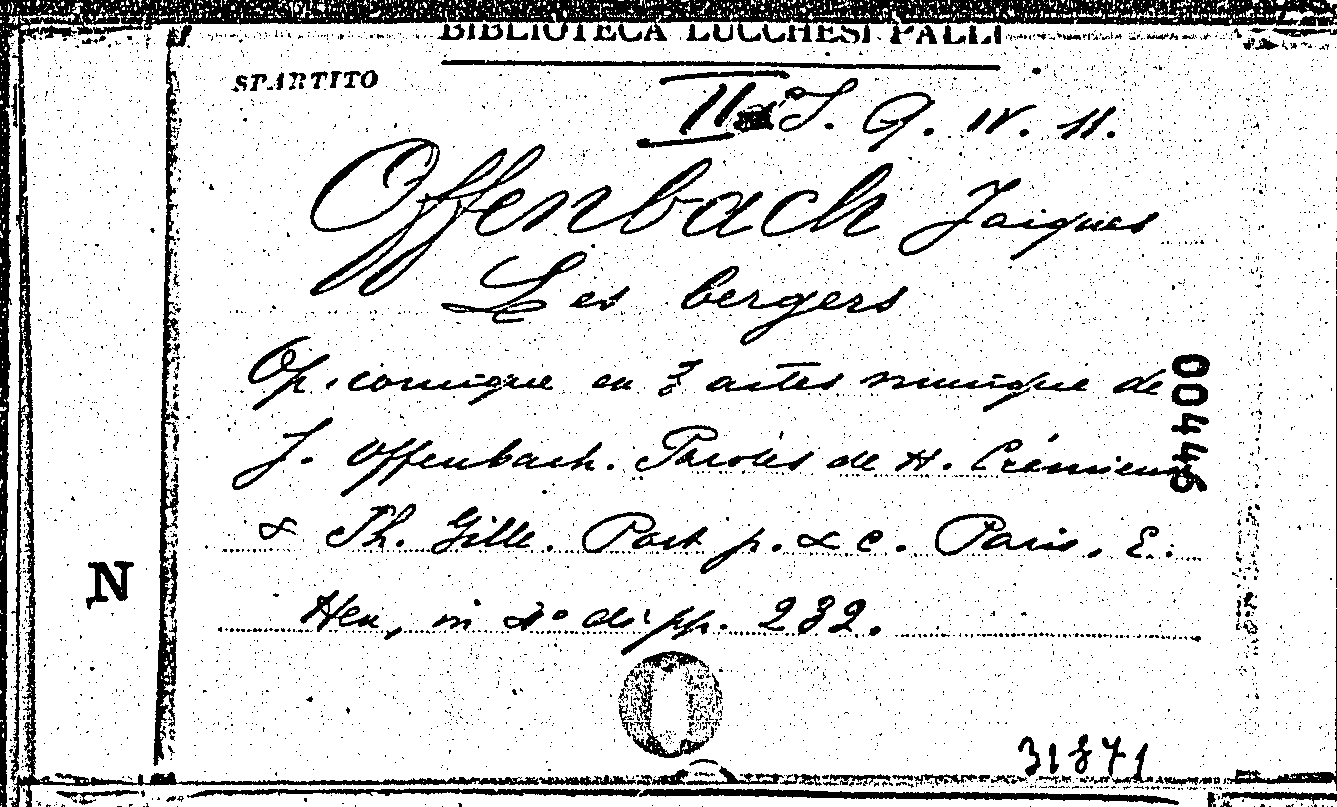 BIBLIOTECA LUCCHESI PALLI
SPARTITO
II S. Q. IV. 11.
Offenbach Jaiques
Les bergers
Op. comique en 3 actes musique de
J. Offenbach. Paroles de H. Crémieux
& Th. Gille. Part p. & c. Paris, E.
Heu, in 4º di pp. 232.
00446
N
31871